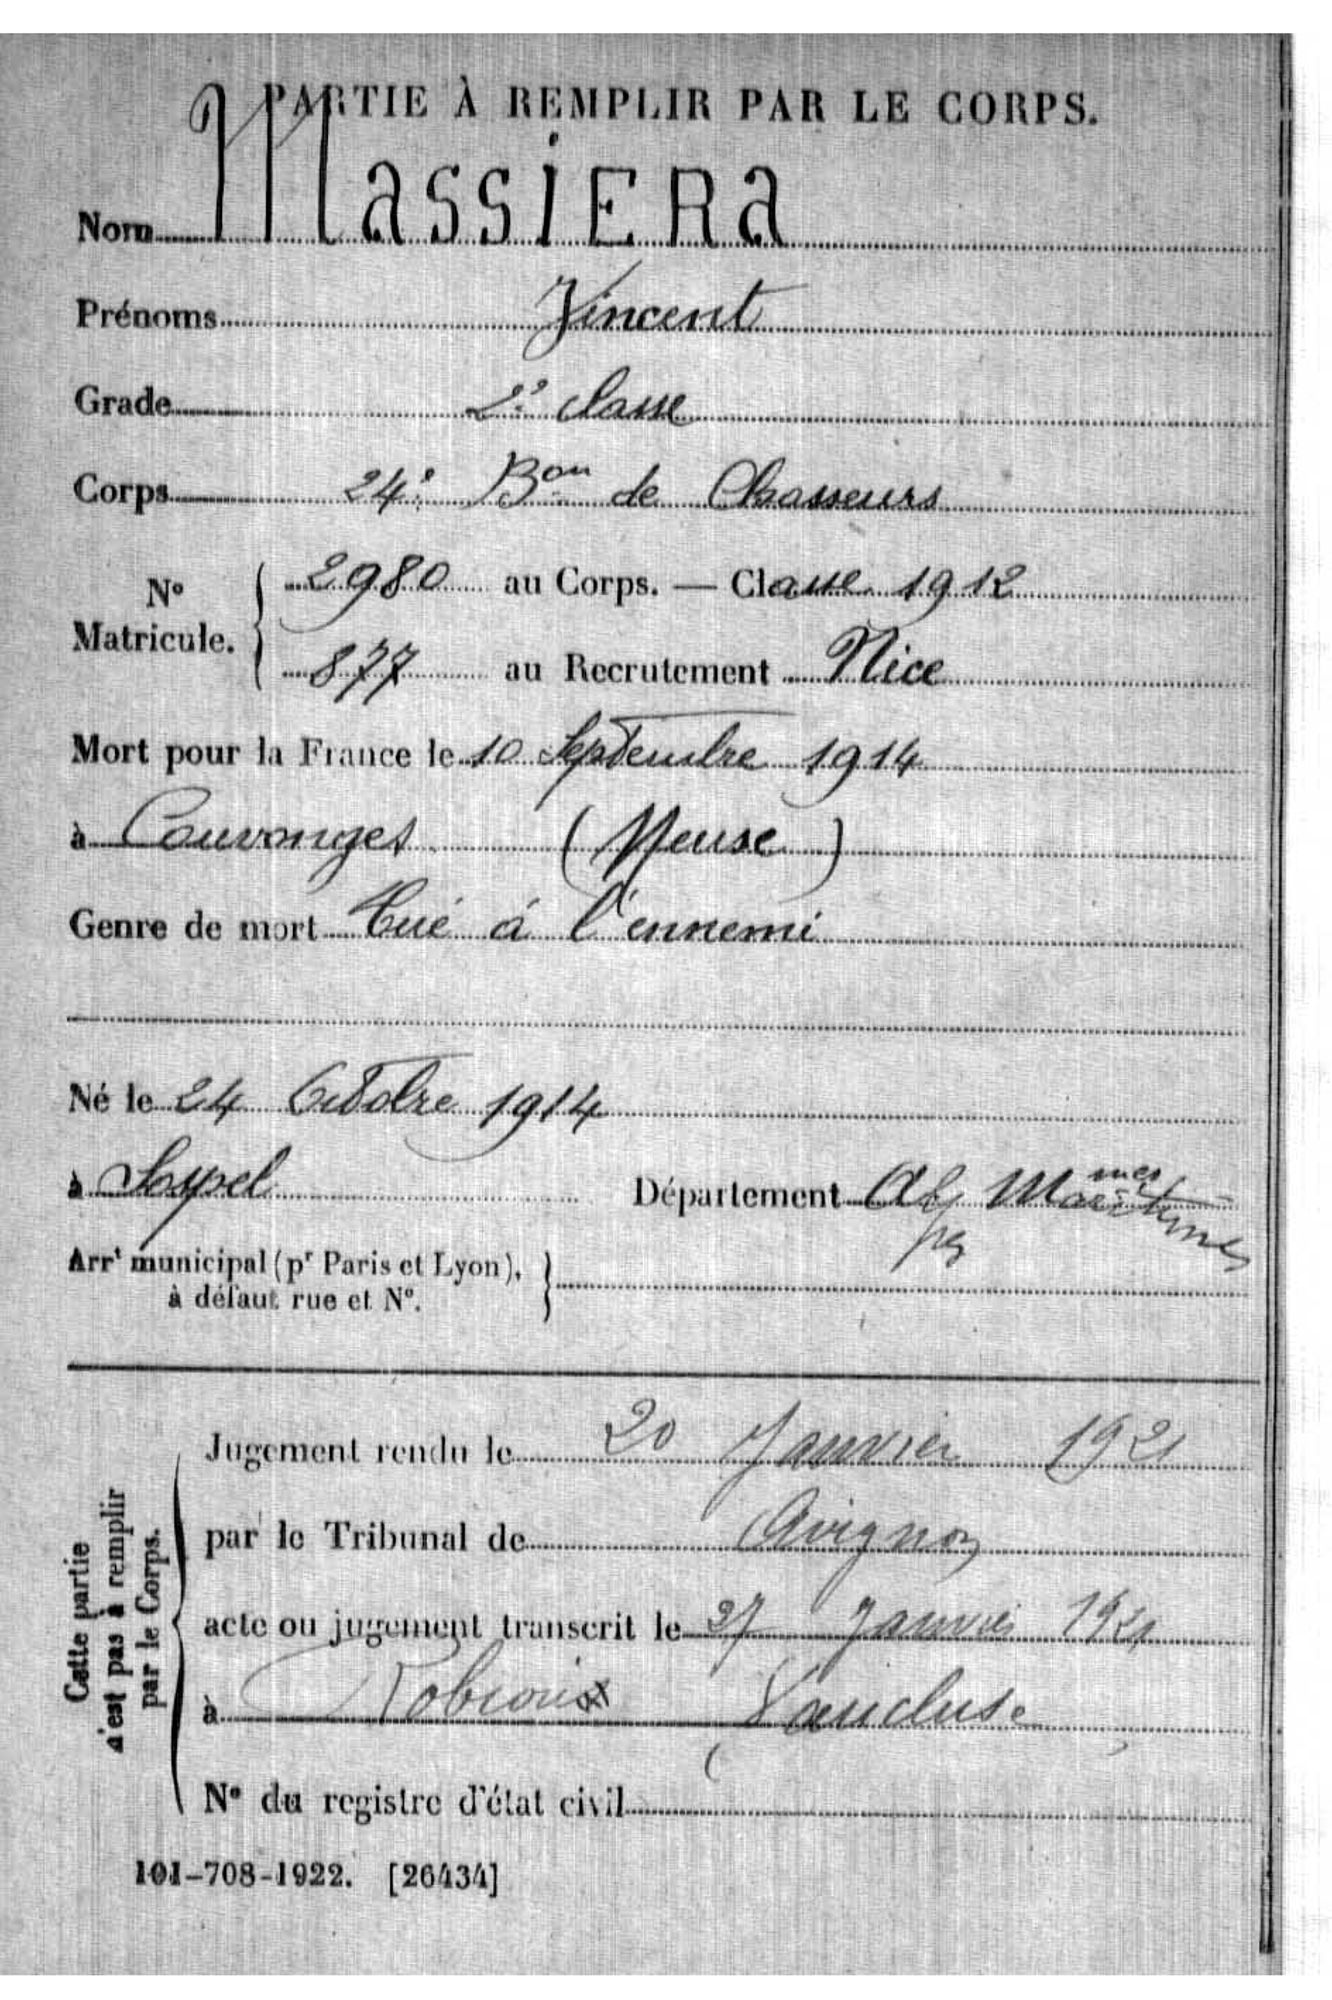 PARTIE À REMPLIR PAR LE CORPS.
Nom MassiERa
Prénoms Vincent
Grade 2e Classe
Corps 24e Bon de Chasseurs
No Matricule. 2980 au Corps. — Classe 1912
877 au Recrutement Nice
Mort pour la France le 10 Septembre 1914
à Couvonges (Meuse)
Genre de mort Tué à l'ennemi
Né le 24 Octobre 1914
à Sospel Département Alpes Maritimes
Arrt municipal (pr Paris et Lyon),
à défaut rue et No.
Cette partie
n'est pas à remplir
par le Corps.
Jugement rendu le 20 Janvier 1921
par le Tribunal de Avignon
acte ou jugement transcrit le 27 Janvier 1921
à Robion Vaucluse
No du registre d'état civil
101-708-1922. [26434]